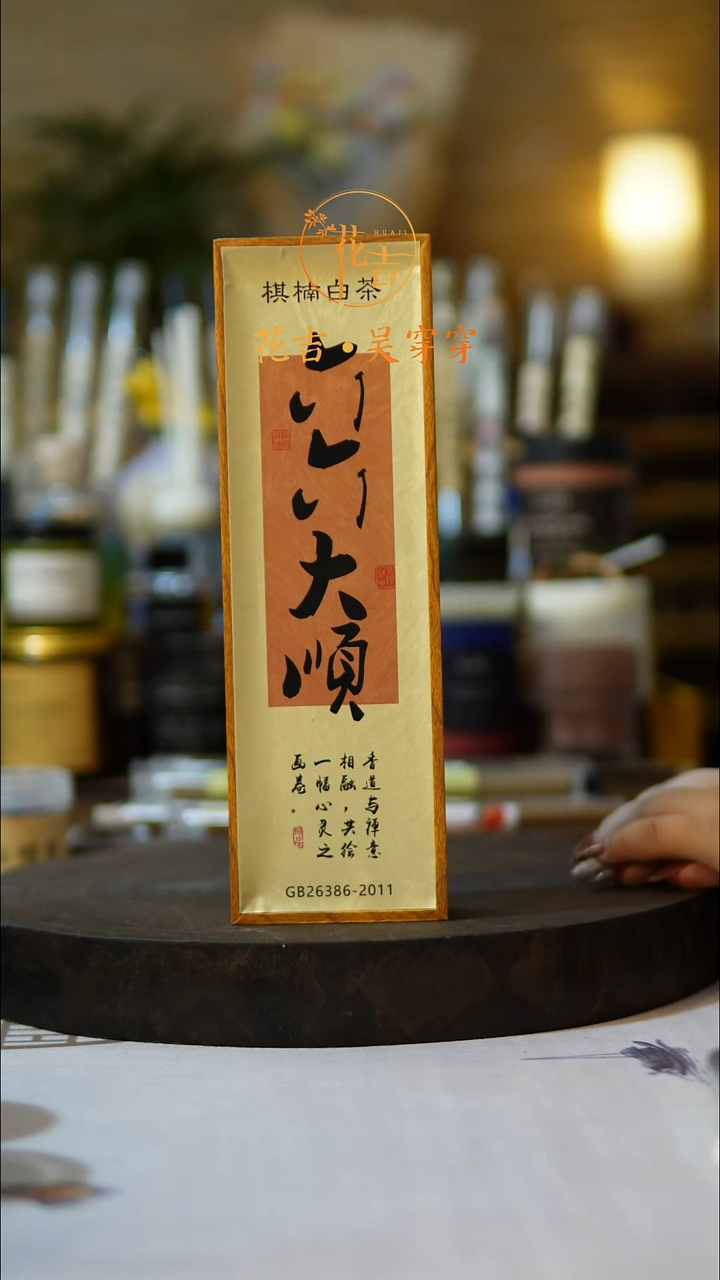 花吉
HUAJI
棋楠白茶
花吉·吴穿穿
六六大順
香道与禅意
相融，共绘
一幅心灵之
画卷。
GB26386-2011